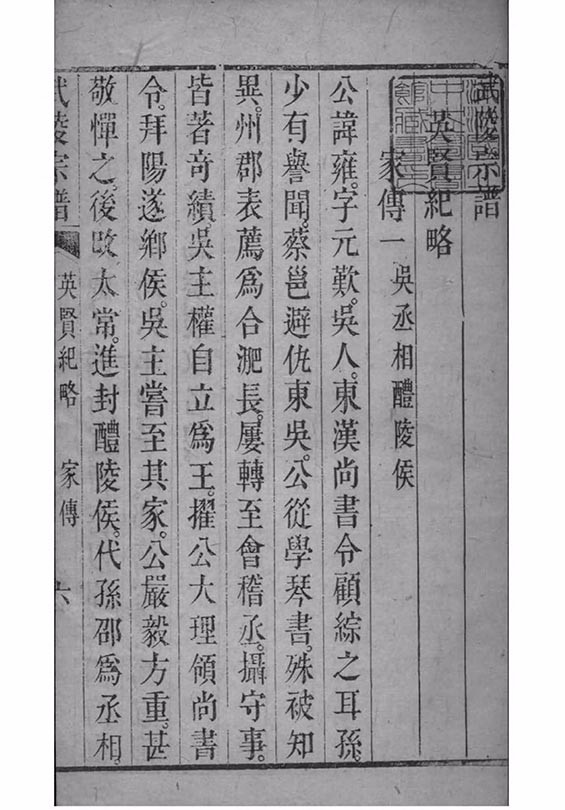 武陵宗譜
英賢紀略
家傳一 吳丞相醴陵侯
公諱雍。字元歎。吳人。東漢尚書令顧綜之耳孫。
少有譽聞。蔡邕避仇東吳。公從學琴書。殊被知
異。州郡表薦爲合淝長。屢轉至會稽丞。攝守事。
皆著奇績。吳主權自立爲王。擢公大理領尚書
令。拜陽遂鄉侯。吳主嘗至其家。公嚴毅方重。甚
敬憚之。後改太常。進封醴陵侯。代孫邵爲丞相。
武陵宗譜 英賢紀略 家傳 六